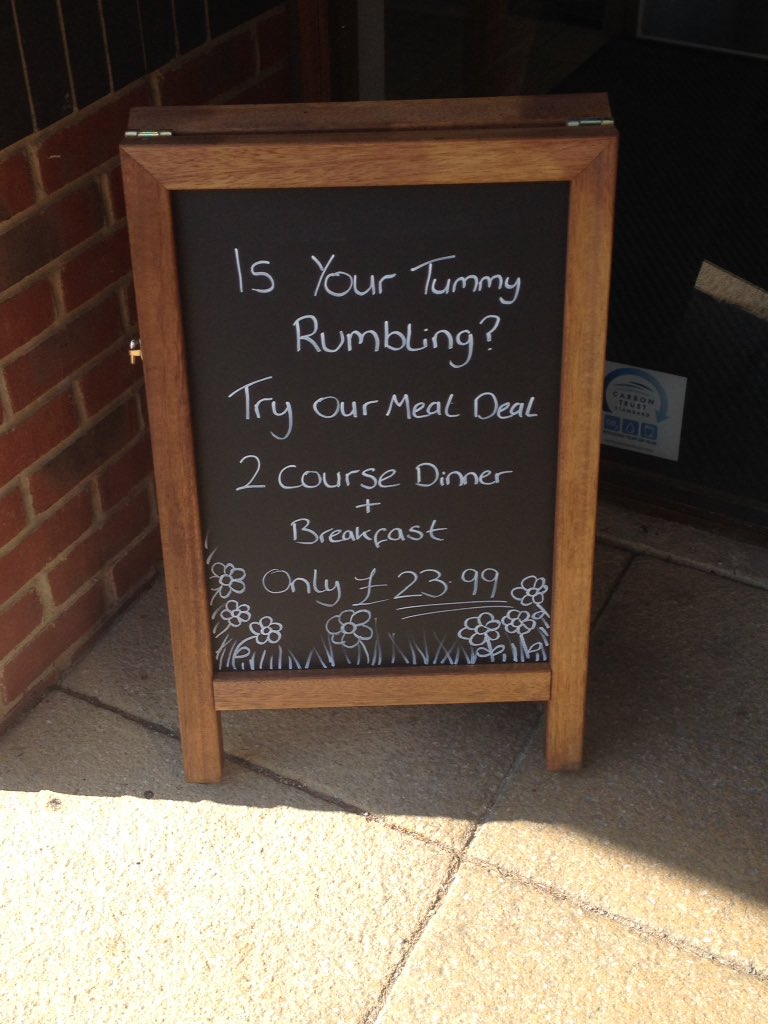 Is Your Tummy
Rumbling?
Try Our Meal Deal
2 Course Dinner
+
Breakfast
Only £23.99
CARBON
TRUST
STANDARD